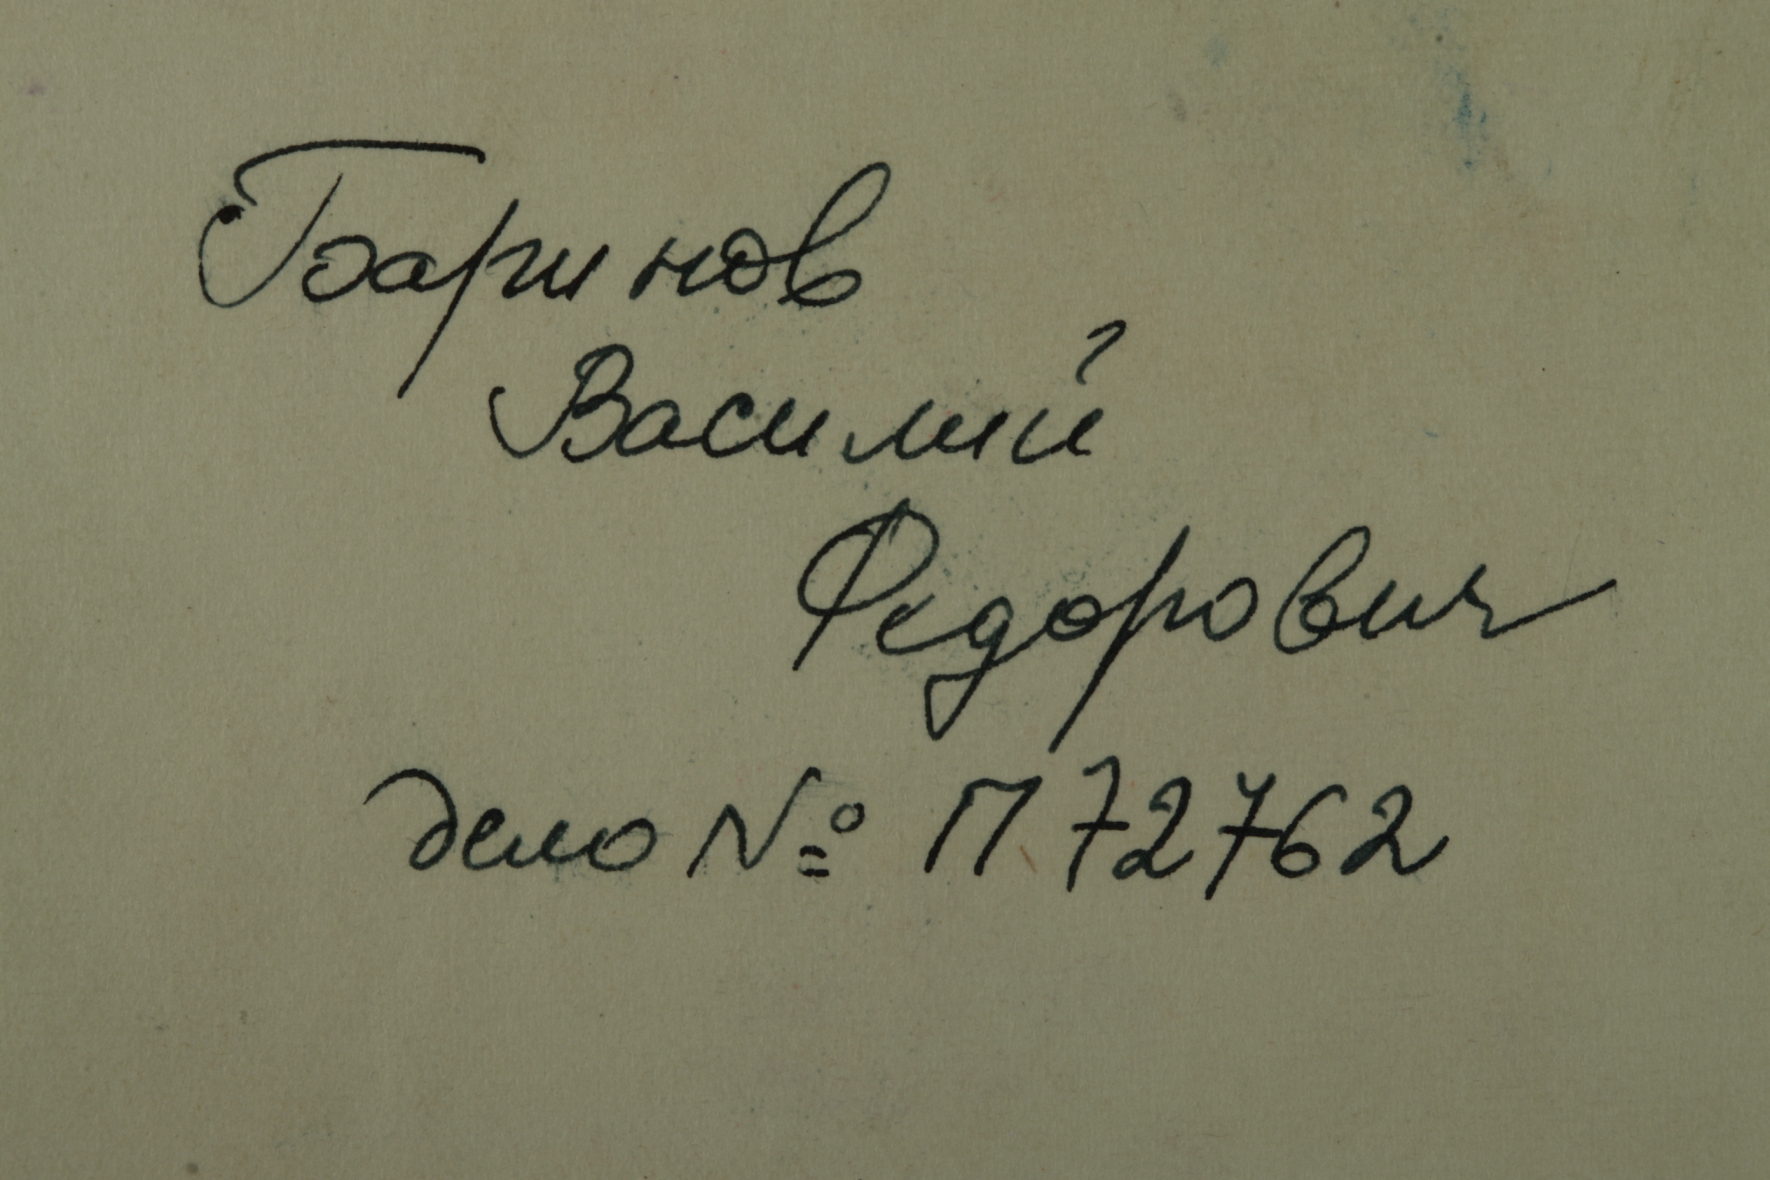 Баринов
Василий
Федорович
дело № П 72762